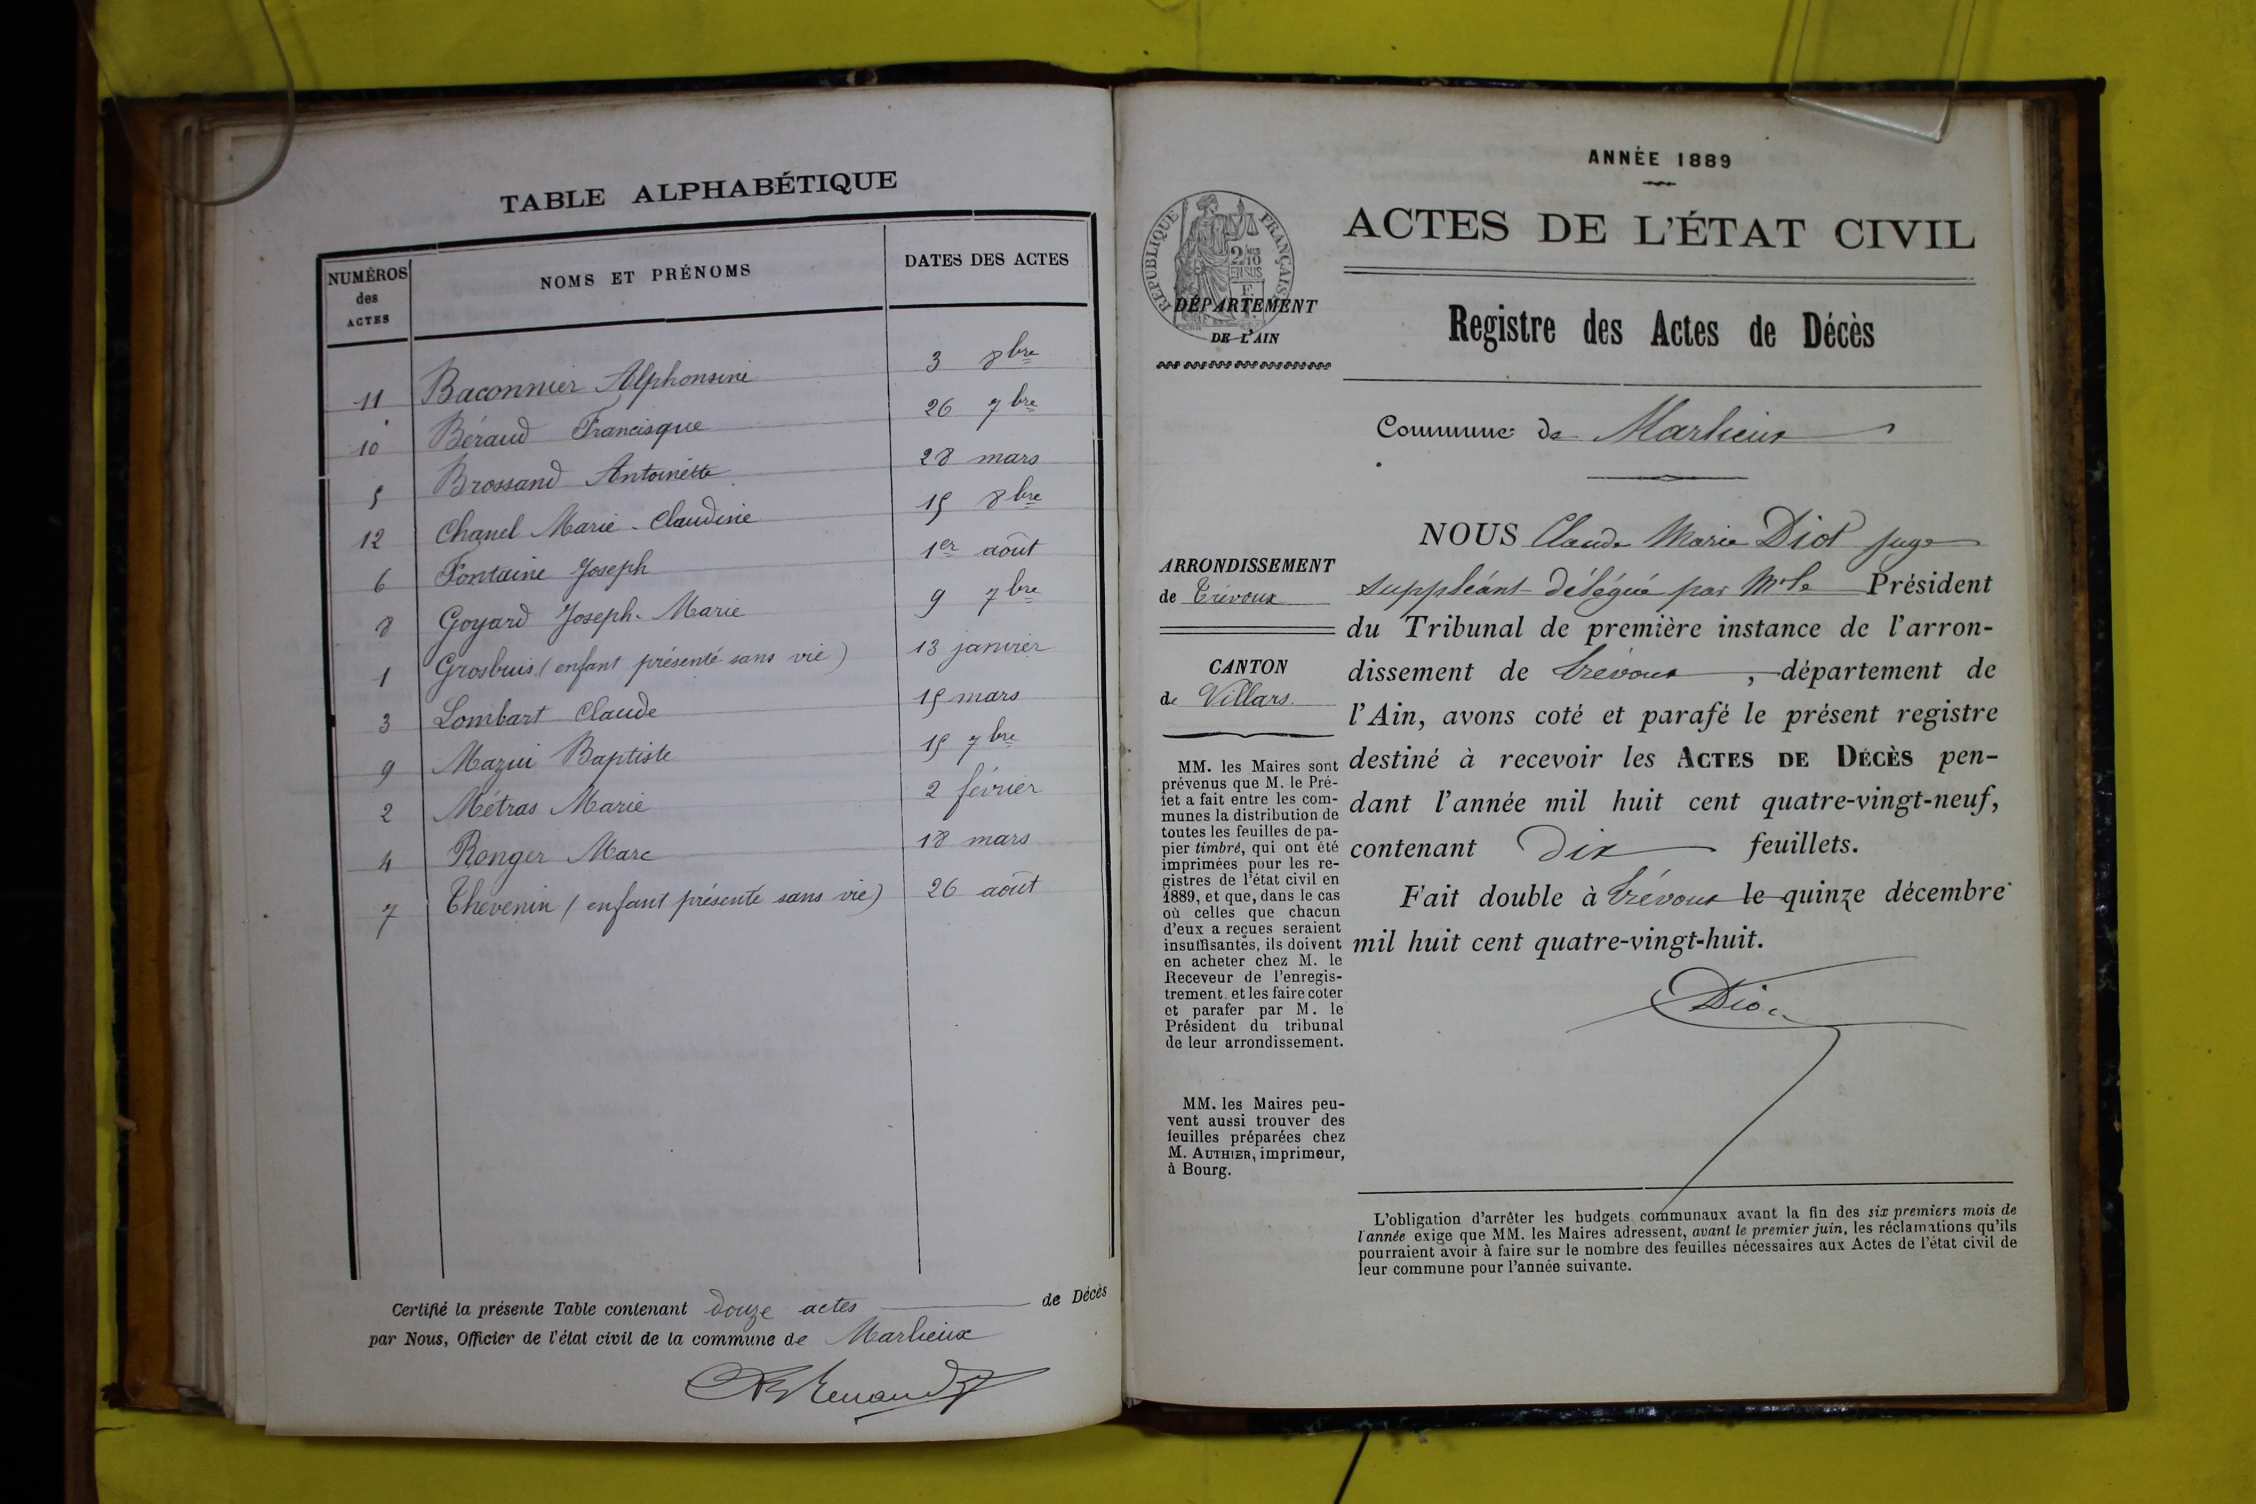 TABLE ALPHABÉTIQUE
NUMÉROS des ACTES | NOMS ET PRÉNOMS | DATES DES ACTES
11 Baconnier Alphonsine 3 8bre
10 Béraud Francisque 26 7bre
5 Brossand Antoinette 28 mars
12 Chanel Marie-Claudine 15 8bre
6 Fontaine Joseph 1er août
8 Goyard Joseph-Marie 9 7bre
1 Grosbuis (enfant présenté sans vie) 13 janvier
3 Lombart Claude 15 mars
9 Mazui Baptiste 15 7bre
2 Métras Marie 2 février
4 Ronger Marc 18 mars
7 Thevenin (enfant présenté sans vie) 26 août
Certifié la présente Table contenant douze actes de Décès
par Nous, Officier de l'état civil de la commune de Marlieux
ANNÉE 1889
ACTES DE L'ÉTAT CIVIL
RÉPUBLIQUE FRANÇAISE
DÉPARTEMENT
DE L'AIN
Registre des Actes de Décès
Commune de Marlieux
ARRONDISSEMENT
de Trévoux
CANTON
de Villars.
MM. les Maires sont
prévenus que M. le Pré-
fet a fait entre les com-
munes la distribution de
toutes les feuilles de pa-
pier timbré, qui ont été
imprimées pour les re-
gistres de l'état civil en
1889, et que, dans le cas
où celles que chacun
d'eux a reçues seraient
insuffisantes, ils doivent
en acheter chez M. le
Receveur de l'enregis-
trement. et les faire coter
et parafer par M. le
Président du tribunal
de leur arrondissement.
MM. les Maires peu-
vent aussi trouver des
feuilles préparées chez
M. AUTHIER, imprimeur,
à Bourg.
NOUS Claude Marie Diot juge
suppléant délégué par Mr le Président
du Tribunal de première instance de l'arron-
dissement de Trévoux, département de
l'Ain, avons coté et parafé le présent registre
destiné à recevoir les ACTES DE DÉCÈS pen-
dant l'année mil huit cent quatre-vingt-neuf,
contenant Dix feuillets.
Fait double à Trévoux le quinze décembre
mil huit cent quatre-vingt-huit.
L'obligation d'arrêter les budgets communaux avant la fin des six premiers mois de
l'année exige que MM. les Maires adressent, avant le premier juin, les réclamations qu'ils
pourraient avoir à faire sur le nombre des feuilles nécessaires aux Actes de l'état civil de
leur commune pour l'année suivante.